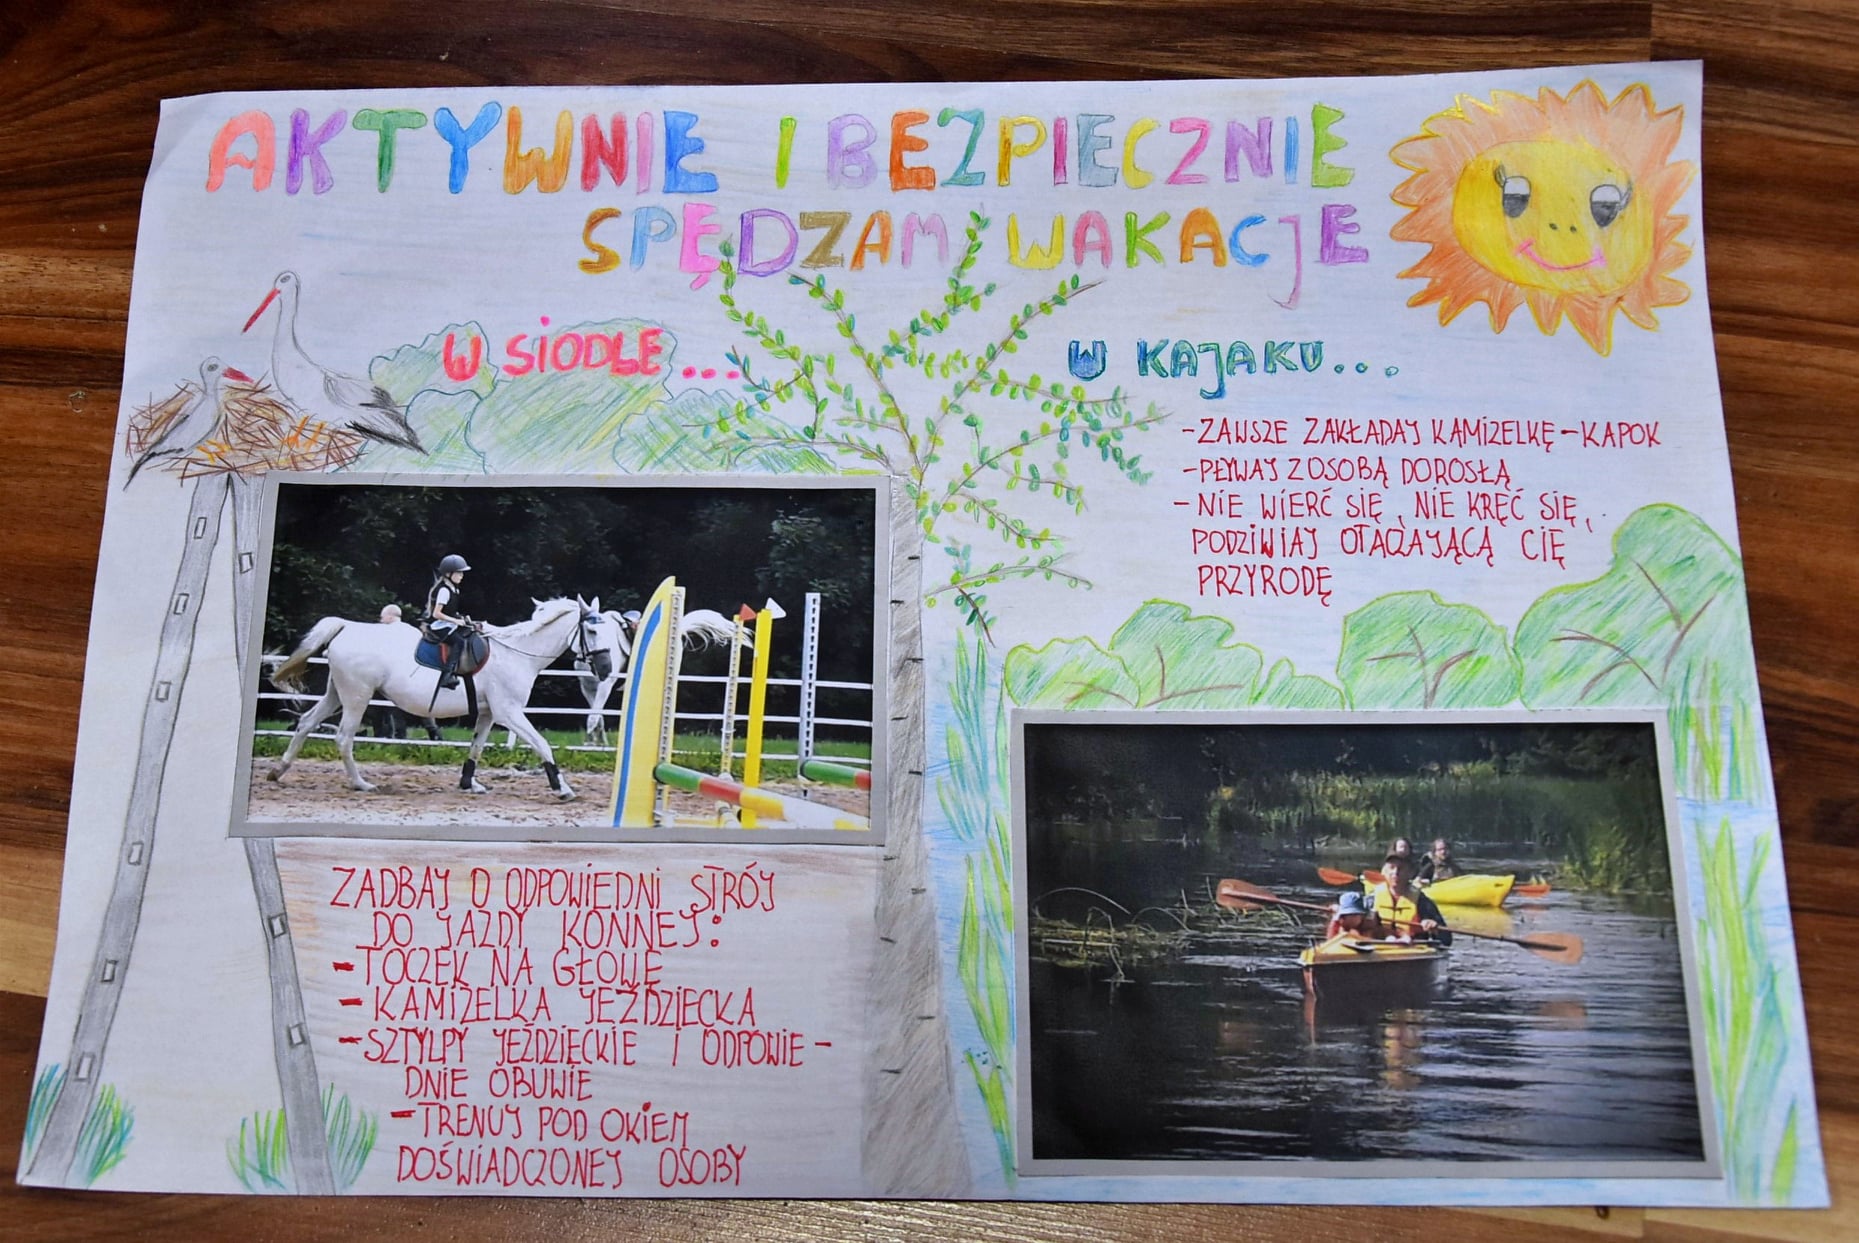 AKTYWNIE I BEZPIECZNIE
SPĘDZAM WAKACJE
W SIODLE...
ZADBAJ O ODPOWIEDNI STRÓJ
DO JAZDY KONNEJ:
-TOCZEK NA GŁOWĘ
-KAMIZELKA JEŹDZIECKA
-SZTYLPY JEŹDZIĘCKIE I ODPOWIE-
DNIE OBUWIE
-TRENUJ POD OKIEM
DOŚWIADCZONEJ OSOBY
W KAJAKU...
-ZAWSZE ZAKŁADAJ KAMIZELKĘ-KAPOK
-PŁYWAJ Z OSOBĄ DOROSŁĄ
-NIE WIERĆ SIĘ, NIE KRĘĆ SIĘ,
PODZIWIAJ OTACZAJĄCĄ CIĘ
PRZYRODĘ